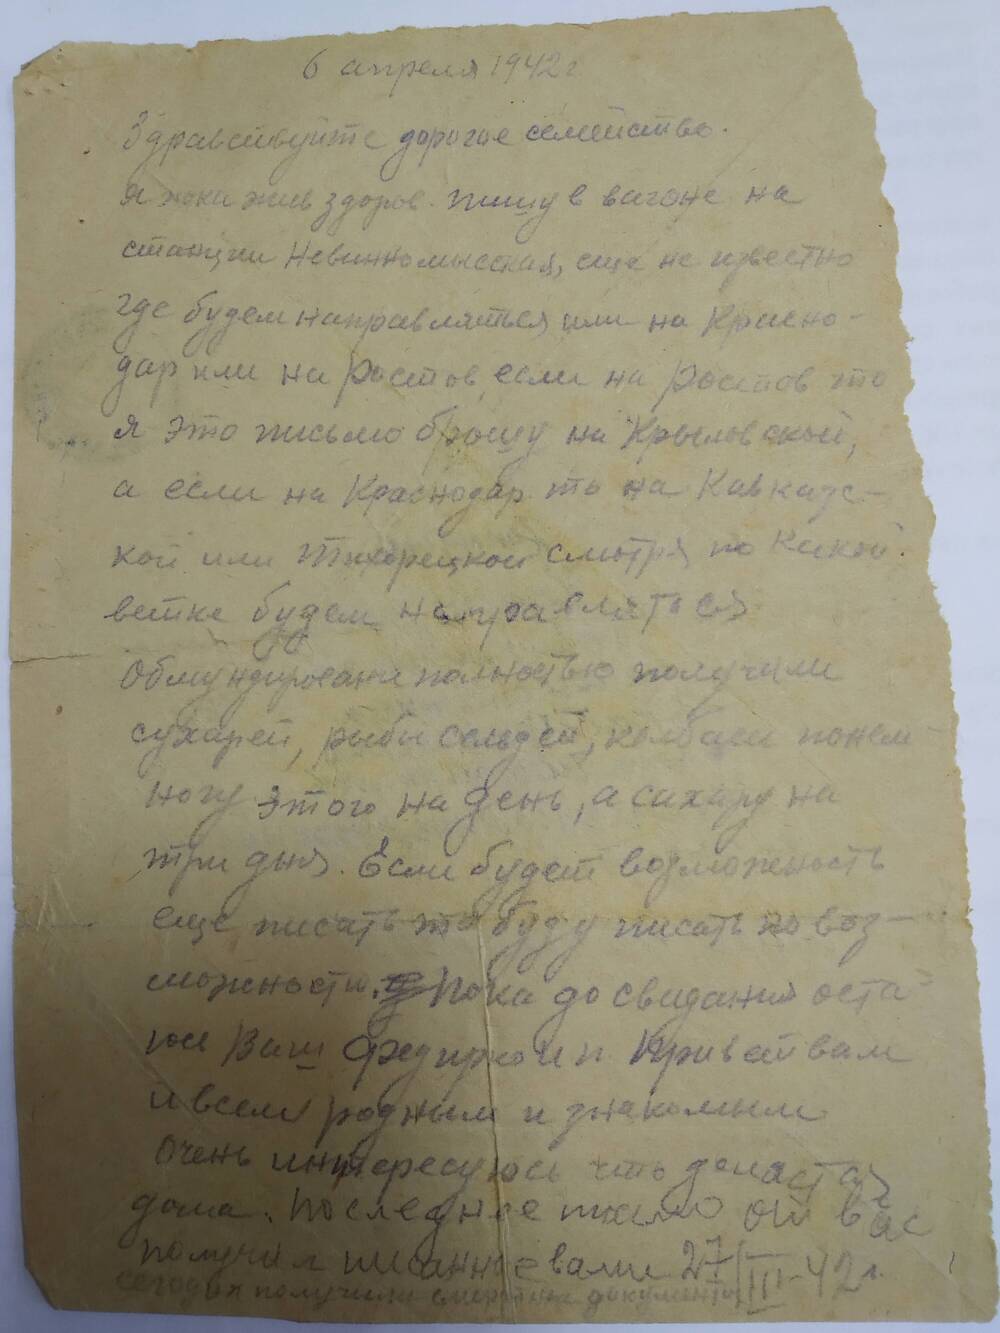 6 апреля 1942 г
Здравствуйте дорогое семейство.
я пока жив здоров. пишу в вагоне на
станции Невинномысская, еще не известно
где будем направляться или на Красно-
дар или на Ростов, если на Ростов то
я это письмо брошу на Крыловской,
а если на Краснодар то на Кавказс-
кой или Тихорецкой смотря по какой
ветке будем направляться
Обмундировани полностью получили
сухарей, рыбы сельдей, колбасы понем-
ногу этого на день, а сахару на
три дня. Если будет возможность
еще писать то буду писать по воз-
можности. Пока до свидания оста-
юсь Ваш Привет вам
и всем родным и знакомым
Очень интересуюсь что делается
дома. Последнее письмо от вас
получил писанное вами 27/III-42 г.
сегодня получили смертные документы